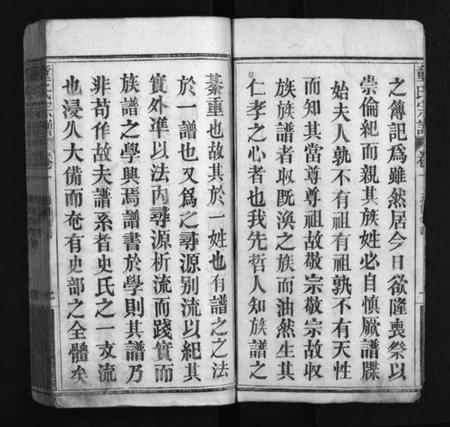 之傳記爲雖然居今日欲隆喪祭以
崇倫紀而親其族姓必自愼厥譜牒
始夫人孰不有祖有祖孰不有天性
而知其當尊尊祖故敬宗敬宗故收
族族譜者收旣渙之族而油然生其
仁孝之心者也我先哲人知族譜之
綦重也故其於一姓也有譜之之法
於一譜也又爲之尋源別流以紀其
實外準以法內尋源析流而踐實而
族譜之學興焉譜書於學則其譜乃
非苟作故夫譜系者史氏之一支流
也浸久大備而奄有史部之全體矣
董氏宗譜
卷